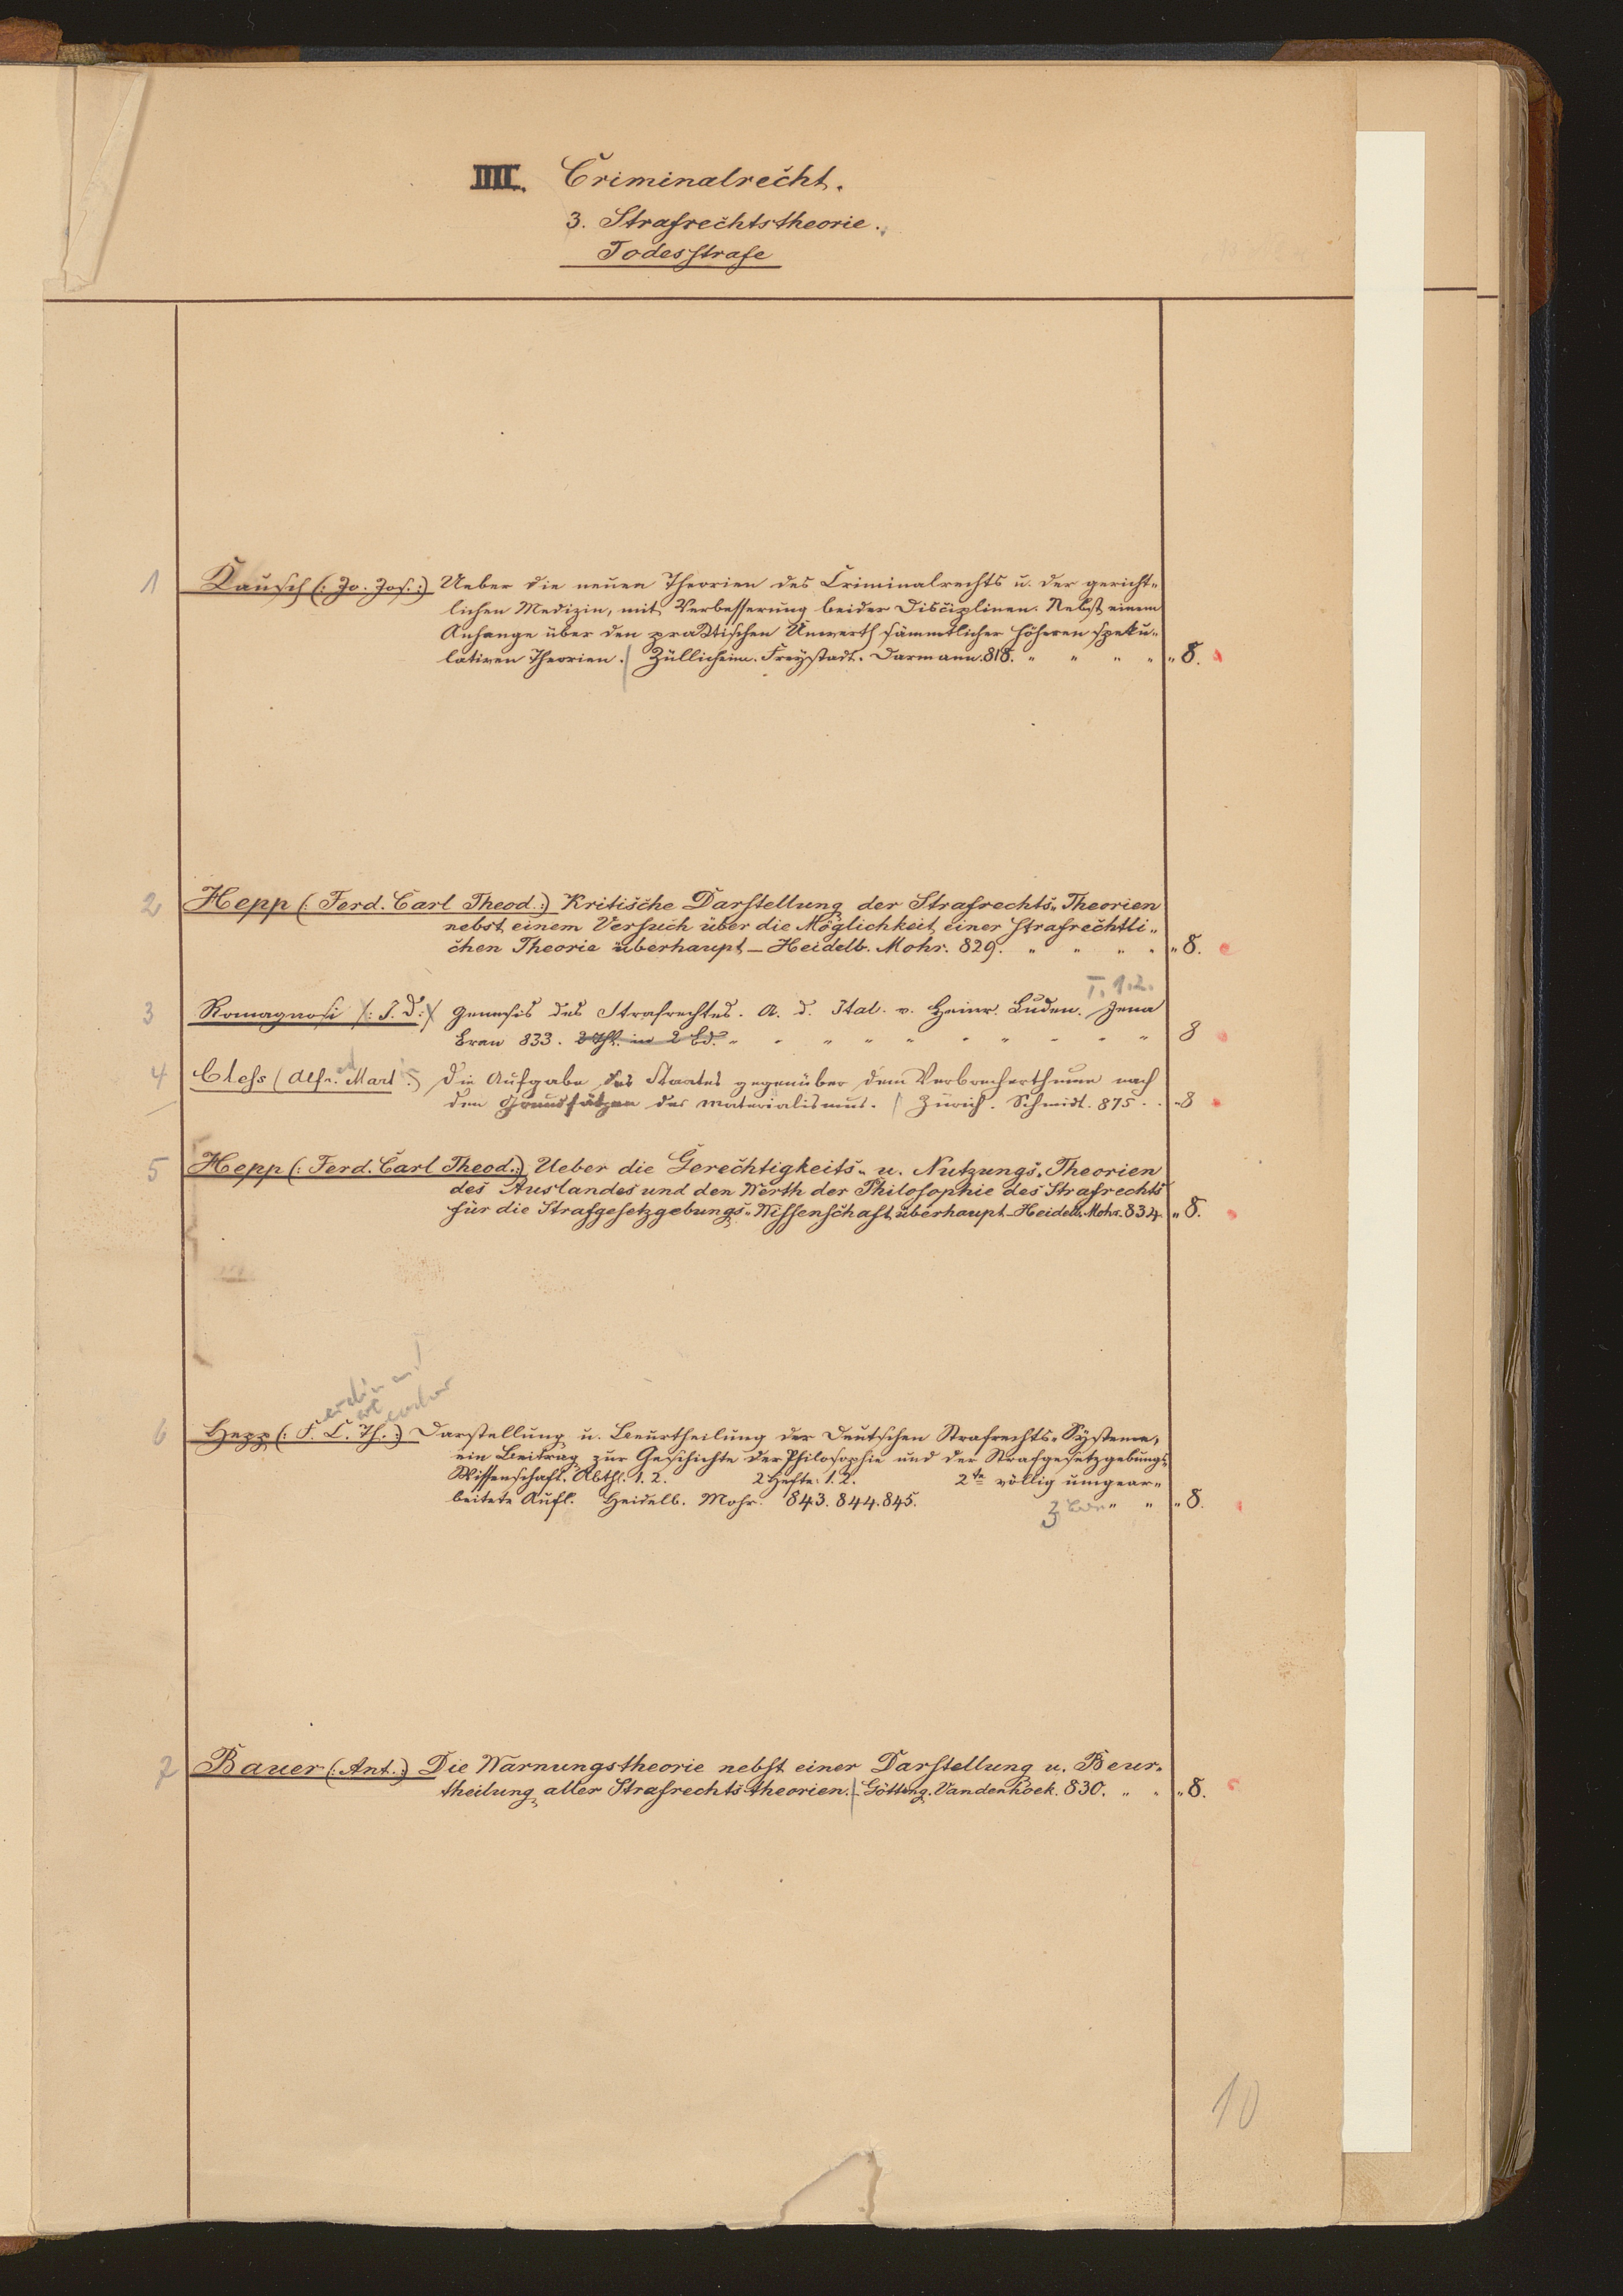 IIII. Criminalrecht.
3. Strafrechtstheorie.
Todesstrafe
1 Kausch (: Jo. Jos. :) Ueber die neuen Theorien des Criminalrechts u. der gericht-
lichen Medizin, mit Verbesserung beider Disciplinen. Nebst einem
Anhange über den praktischen Unwerth sämmtlicher höheren speku-
lativen Theorien. Züllichau. Freystadt. Darmann. 818. " " " " " 8.
2 Hepp (: Ferd. Carl Theod. :) Kritische Darstellung der Strafrechts-Theorien
nebst einem Versuch über die Möglichkeit einer strafrechtli-
chen Theorie überhaupt – Heidelb. Mohr. 829. " " " " " 8.
T. 1.2.
3 Romagnosi (: J. D. :) Genesis des Strafrechtes. A. d. Ital. v. Heinr. Luden. Jena
Bran 833. 2 Thl. in 2 Bd. " " " " " " " " " " 8
4 Cless (Alfr. Mart :) Die Aufgabe des Staates gegenüber dem Verbrecherthume nach
den Grundsätzen des Materialismus. Zürich. Schmidt. 875. . . 8
5 Hepp (: Ferd. Carl Theod. :) Ueber die Gerechtigkeits- u. Nutzungs-Theorien
des Auslandes und den Werth der Philosophie des Strafrechts
für die Strafgesetzgebungs-Wissenschaft überhaupt – Heidelb. Mohr. 834. " 8.
erdinand
arl
eodor
6 Hepp (: F. C. Th. :) Darstellung u. Beurtheilung der Deutschen Strafrechts-Systeme,
ein Beitrag zur Geschichte der Philosophie und der Strafgesetzgebungs-
Wissenschaft. Abthl. 1. 2. 2 Hefte: 1. 2. 2te völlig umgear-
beitete Aufl. Heidelb. Mohr. 843. 844. 845. 3 " " " 8.
7 Bauer (: Ant. :) Die Warnungstheorie nebst einer Darstellung u. Beur-
theilung aller Strafrechts-theorien. – Götting. Vandenhoek. 830. " " " 8.
10